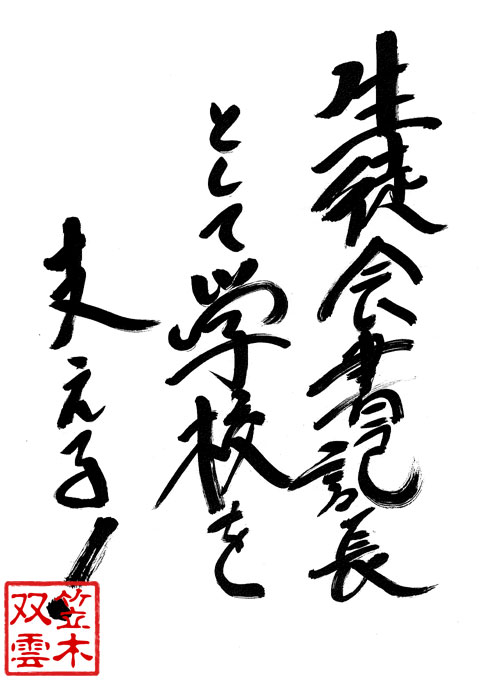 生徒会書記長
として学校を
支える!
笠木
双雲